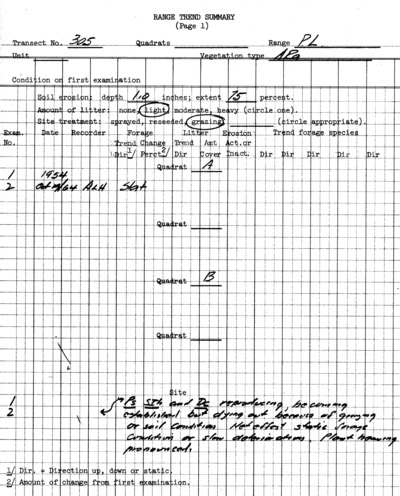 RANGE TREND SUMMARY
(Page 1)
Transect No. 305 Quadrats Range PL
Unit Vegetation type
Condition on first examination
Soil erosion: depth 1.0 inches; extent 75 percent.
Amount of litter: none, light, moderate, heavy (circle one).
Site treatment: sprayed, reseeded, grazing (circle appropriate).
Exam. Date Recorder Forage Litter Erosion: Trend forage species
No. Trend Change Trend Amt Act.or
Dir 1/ Perct 2/ Dir Cover Inact. Dir Dir Dir Dir Dir Dir
Quadrat A
1 1954
2 ALH Stat
Quadrat
Quadrat B
Quadrat
Site
1 Ps Sth and Dc reproducing, becoming
2 established but dying out because of grazing
or soil condition. Net effect static image
condition or slow deterioration. Plant
pronounced.
1/ Dir. = Direction up, down or static.
2/ Amount of change from first examination.